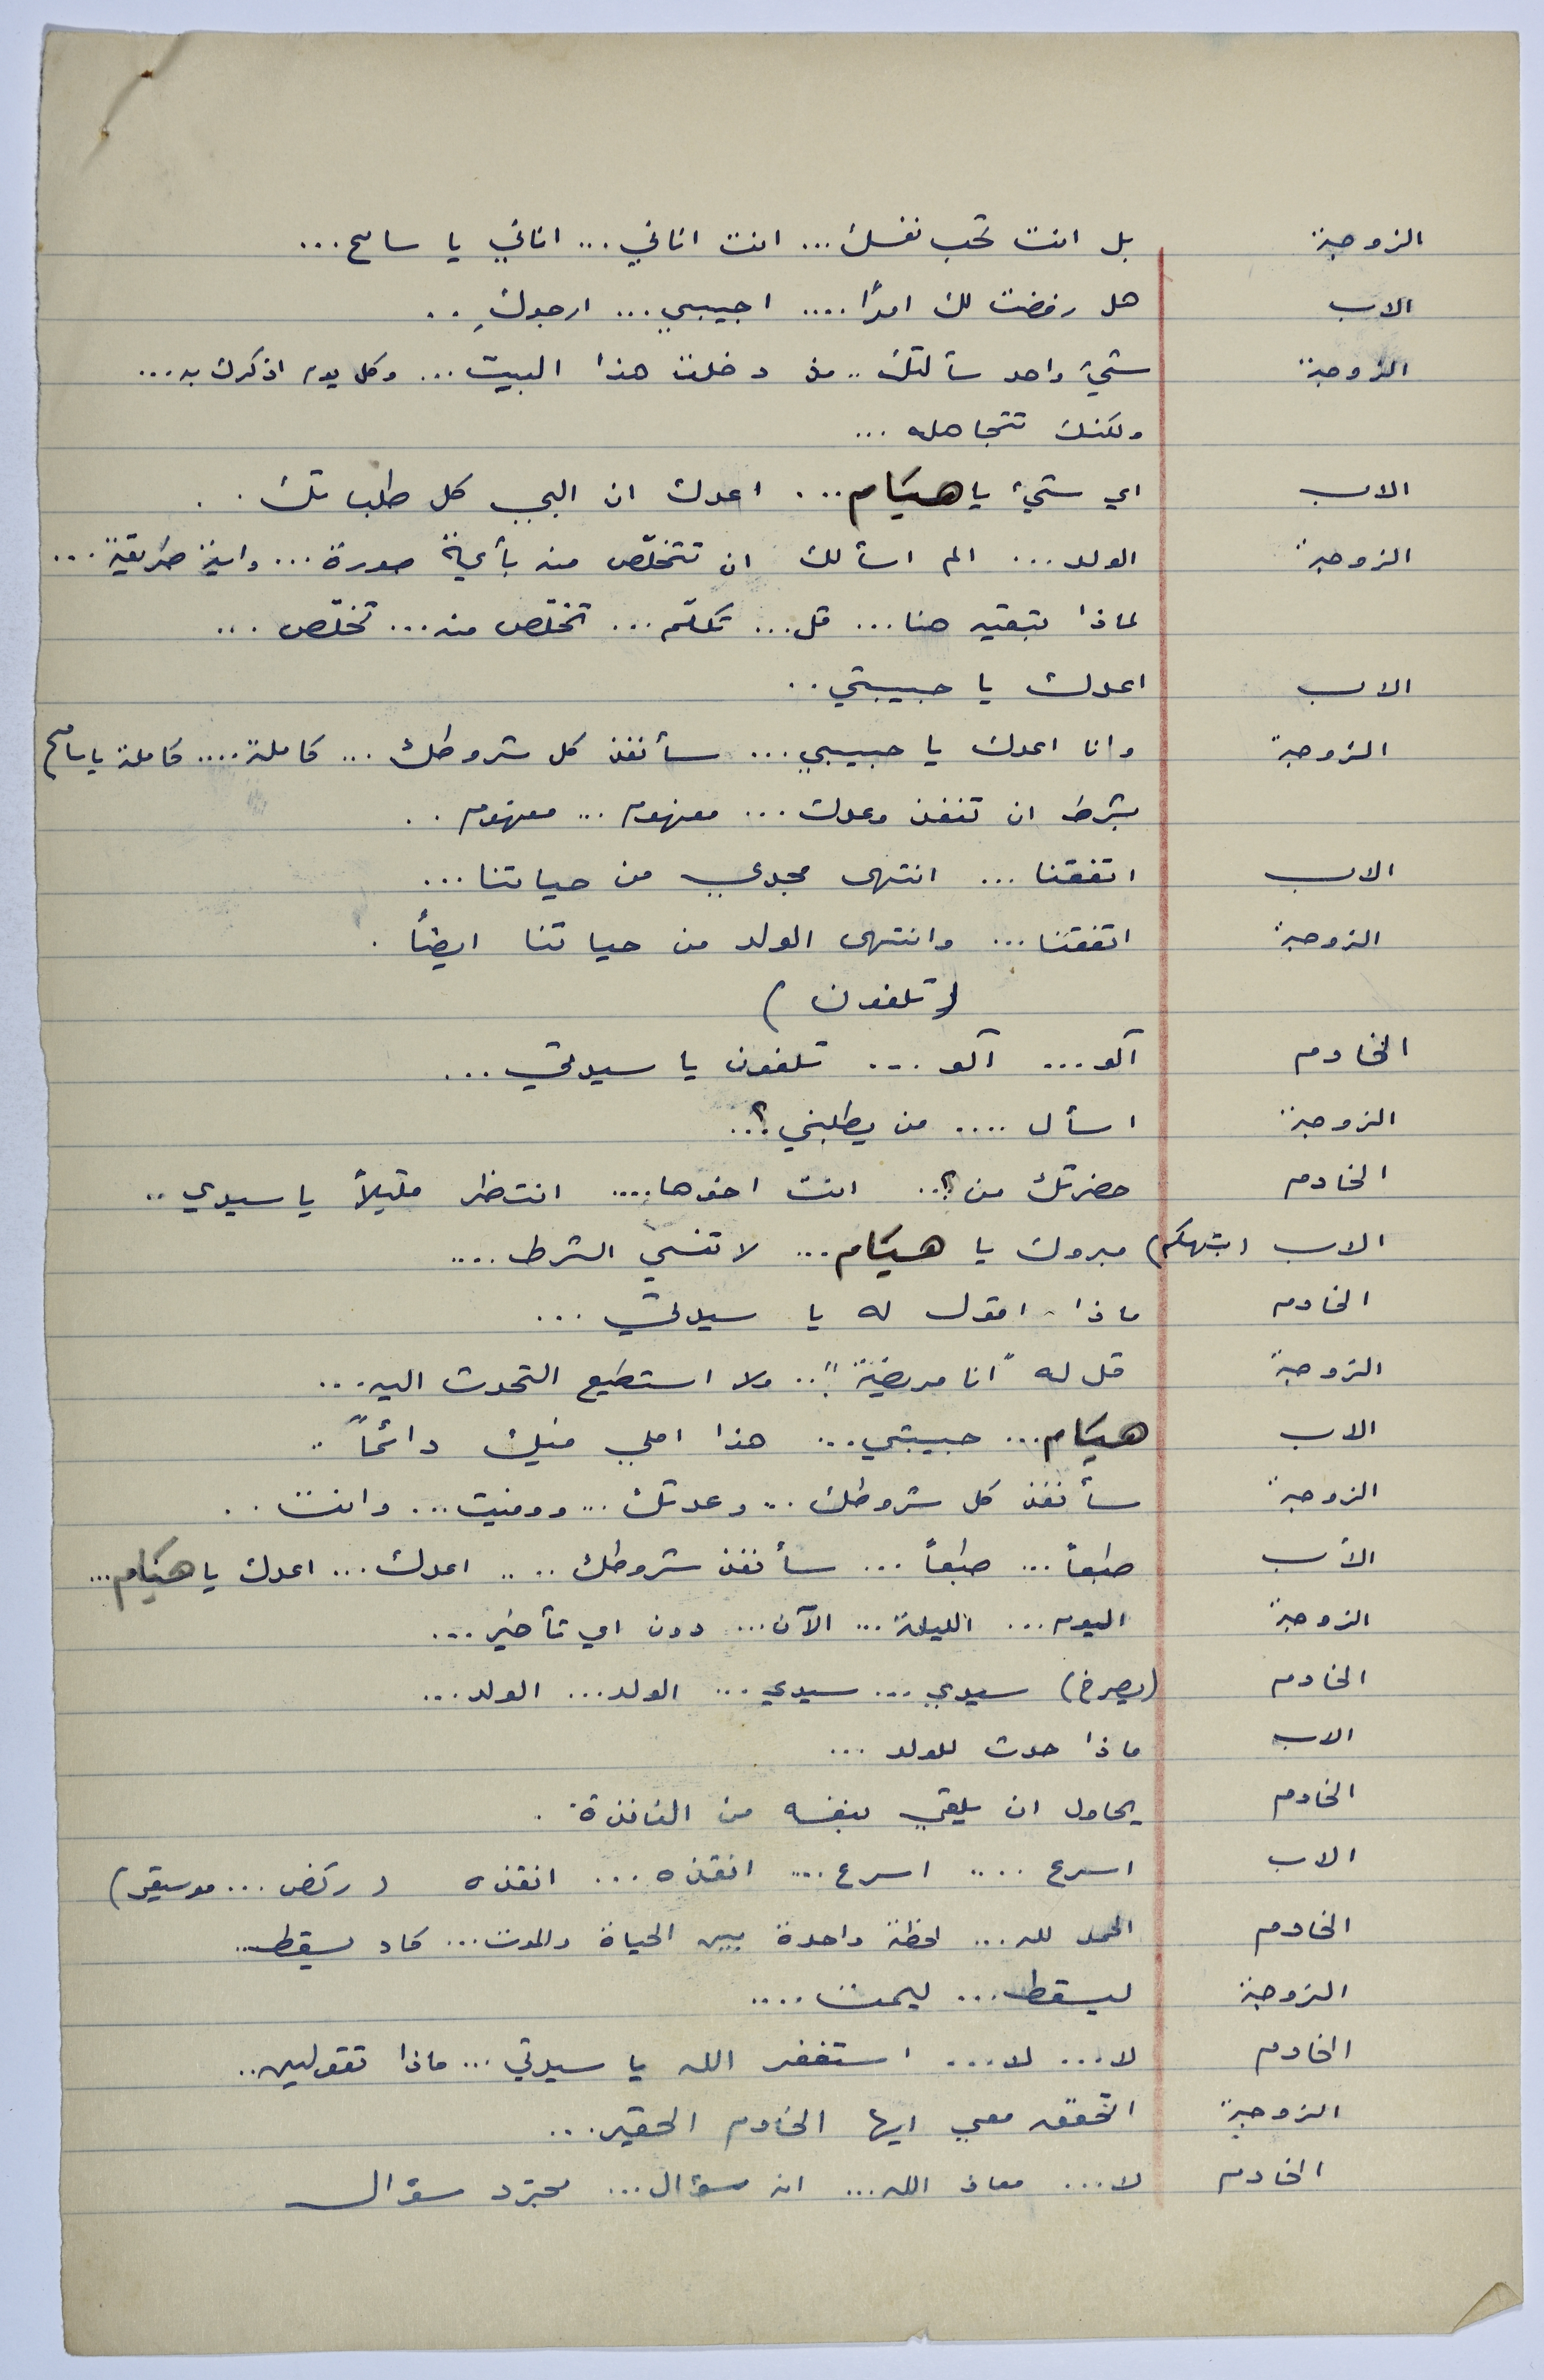 الزوجة بل انت تحب نفسك ... انت اناني ... اناني يا سامح ...
الاب هل رفضت لك امرًا .... اجيبي ... ارجوكِ ..
الزوجة شيءٌ واحد سألتك .. منذ دخلت هذا البيت ... وكل يوم اذكرك به ...
ولكنك تتجاهله ...
الاب اي شيء يا هيام ... اعدك ان البي كل طلباتك ..
الزوجة الولد ... الم اسألك ان تتخلّص منه بأية صورة ... واية طريقة ...
لماذا تبقيه هنا ... قل ... تكلّم ... تخلّص منه ... تخلّص ...
الاب اعدك يا حبيبتي ..
الزوجة وانا اعدك يا حبيبي ... سأنفذ كل شروطك ... كاملة .... كاملة يا سامح
بشرط ان تنفذ وعدك ... مفهوم ... مفهوم ..
الاب اتفقنا ... انتهى مجدي من حياتنا ...
الزوجة اتفقنا ... وانتهى الولد من حياتنا ايضاً .
( تلفون )
الخادم آلو ... آلو ... تلفون يا سيدتي ...
الزوجة اسأل .... من يطلبني ؟..
الخادم حضرتك من ؟.. انت اخوها .... انتظر قليلاً يا سيدي ..
الاب (بتهكم) مبروك يا هيام ... لا تنسي الشرط ....
الخادم ماذا اقول له يا سيدتي ...
الزوجة قل له "انا مريضة" .. ولا استطيع التحدث اليه ...
الاب هيام ... حبيبتي ... هذا املي فيك دائماً ..
الزوجة سأنفذ كل شروطك ... وعدتك ... ووفيت ... وانت ..
الأب طبعاً ... طبعاً ... سأنفذ شروطك .... اعدك ... اعدك يا هيام ...
الزوجة اليوم ... الليلة ... الآن ... دون اي تأخير ...
الخادم (يصرخ) سيدي ... سيدي ... الولد ... الولد ...
الاب ماذا حدث للولد ...
الخادم يحاول ان يلقي بنفسه من النافذة .
الاب اسرع .... اسرع .... انقذه ... انقذه ( ركض ... موسيقى )
الخادم الحمد لله ... لحظة واحدة بين الحياة والموت ... كاد يسقط ..
الزوجة ليسقط ... ليمت ....
الخادم لا ... لا ... استغفر الله يا سيدتي ... ماذا تقولين ..
الزوجة اتحقق معي ايها الخادم الحقير ...
الخادم لا ... معاذ الله ... انه سؤال ... مجرّد سؤال